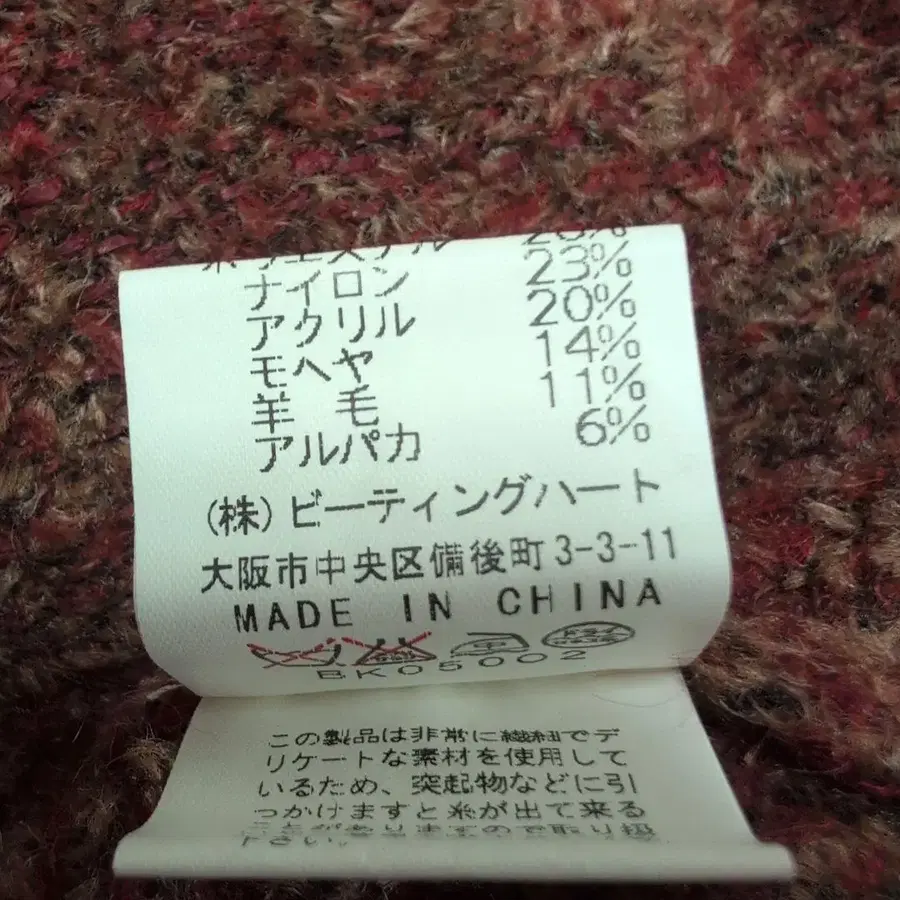 ポリエステル
ナイロン 23%
アクリル 20%
モヘヤ 14%
羊毛 11%
アルパカ 6%
(株)ビーティングハート
大阪市中央区備後町3-3-11
MADE IN CHINA
中 ドライ
BK05002
この製品は非常に繊細でデ
リケートな素材を使用して
いるため、突起物などに引
っかけますと糸が出て来る
ことがありますので取り扱
下さい。